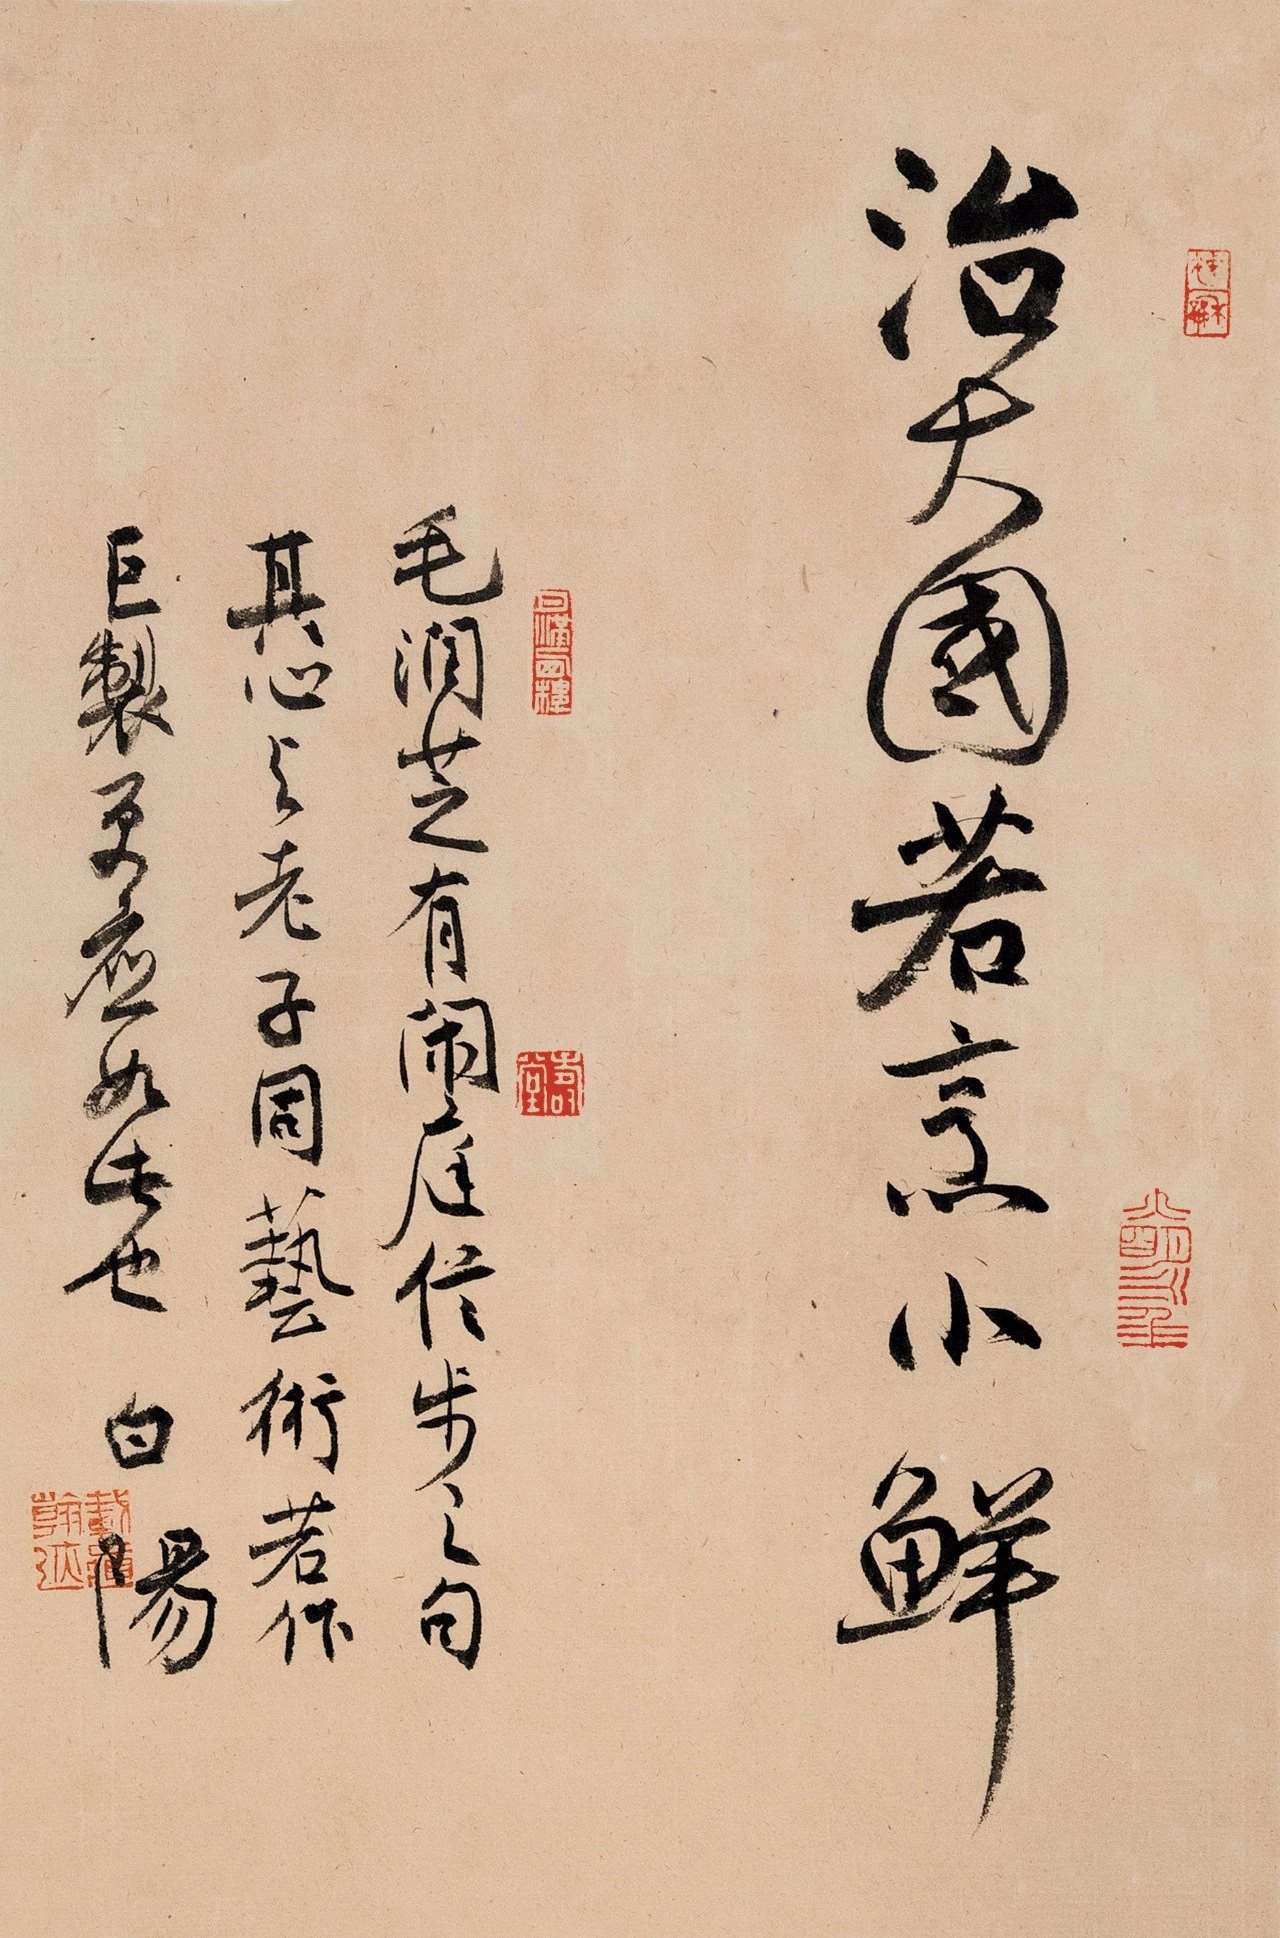 治大國若烹小鮮
毛润芝有闹庭信步之句
其心与老子同藝術若作
巨製更應如此也 白陽